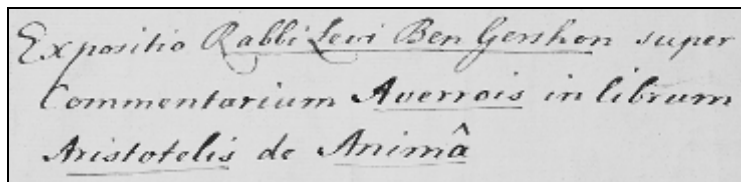 Expositio Rabbi Levi Ben Gershon super
Commentarium Averrois in librum
Aristotelis de Animâ